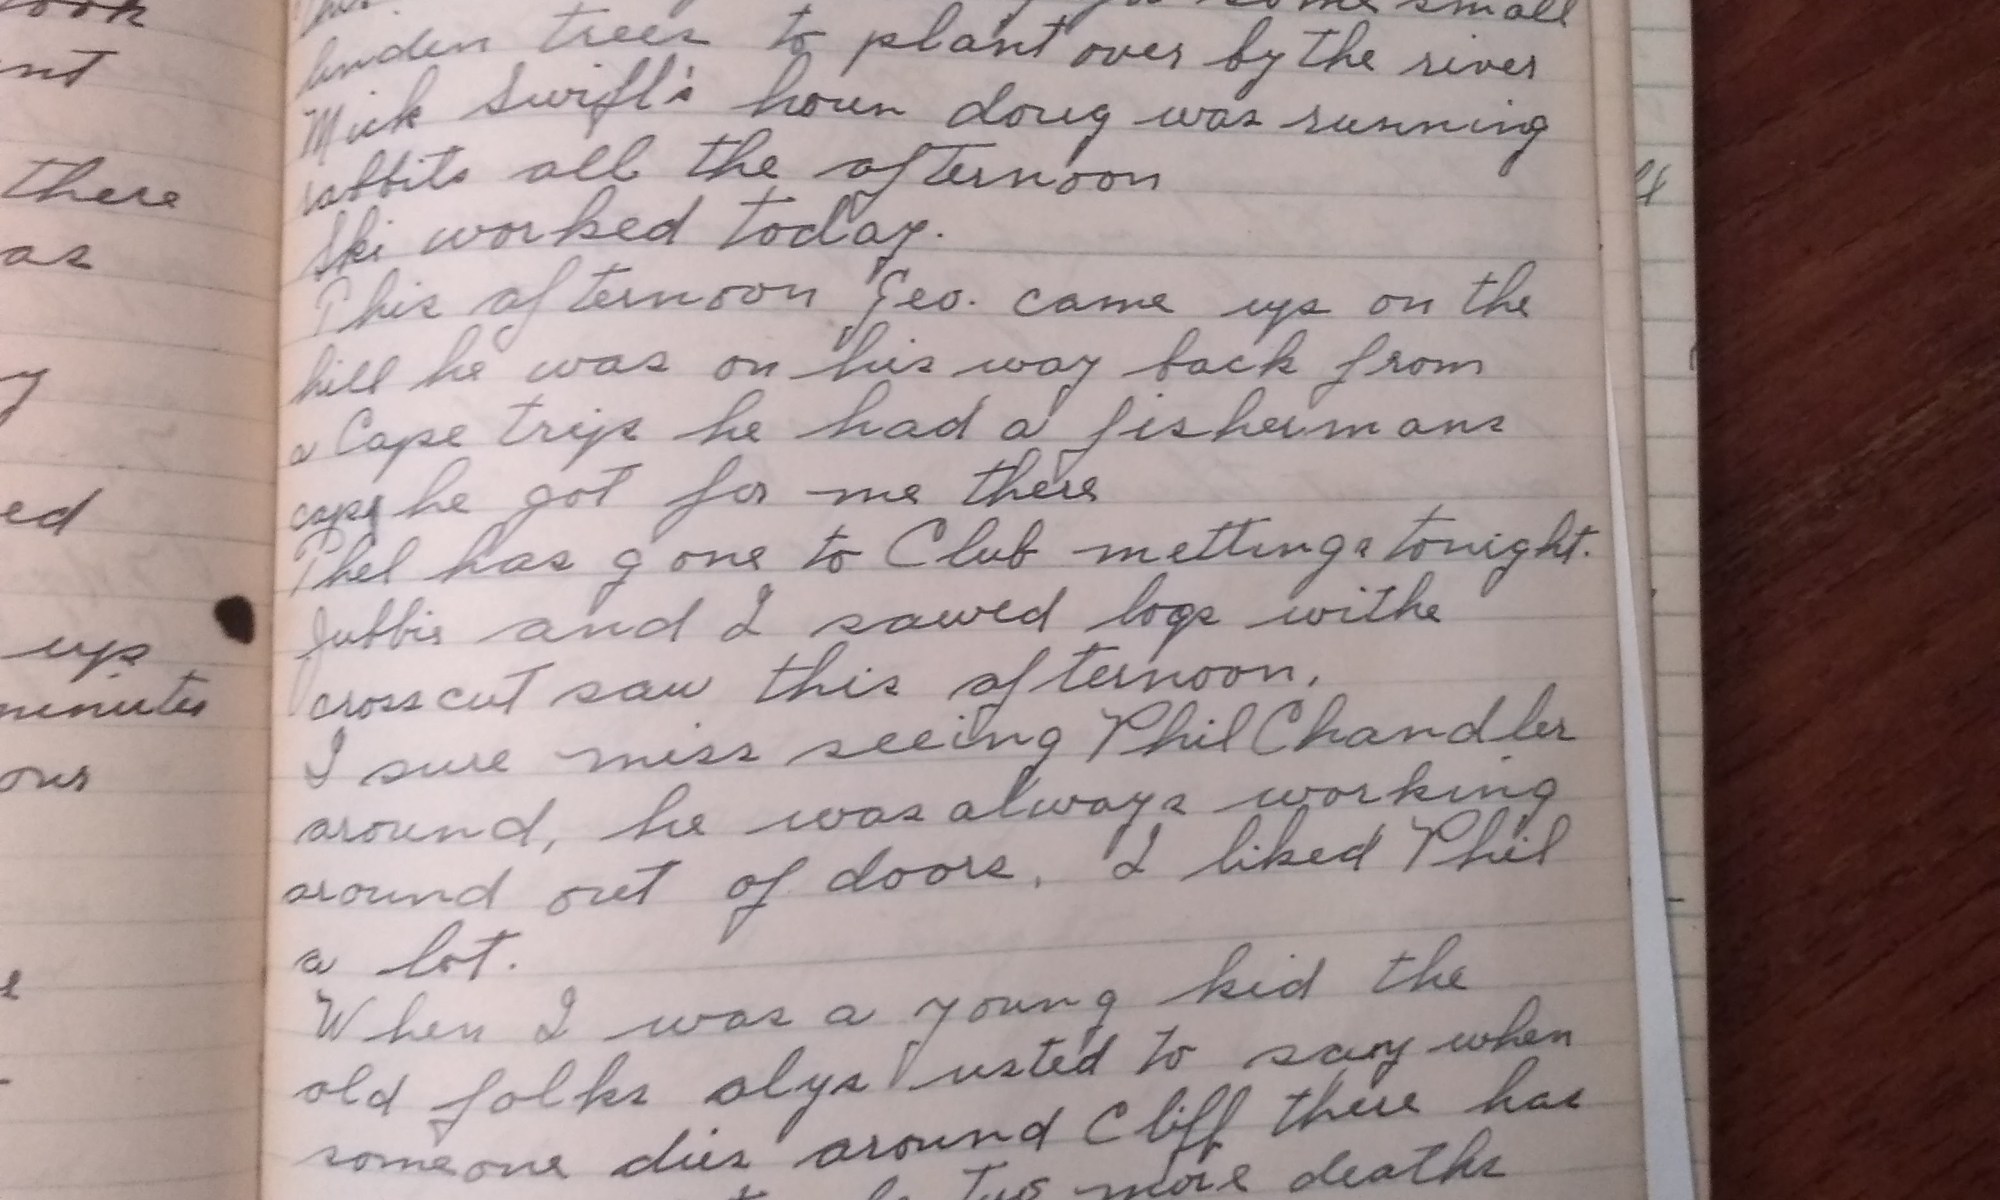 ook
ent
there
as
y
ed
up
minutes
our
some small
linden trees to plant over by the river
Mick Swift's houn doug was running
rabbits all the afternoon
Ski worked today.
This afternoon Geo. came up on the
hill he was on his way back from
a Cape trip he had a fishermans
cap he got for me there
Phel has gone to Club mettings tonight.
Jubbie and I sawed logs withe
crosscut saw this afternoon.
I sure miss seeing Phil Chandler
around, he was always working
around out of doors. I liked Phil
a lot.
When I was a young kid the
old folks alys usted to say when
someone dies around Cliff there has
two more deaths